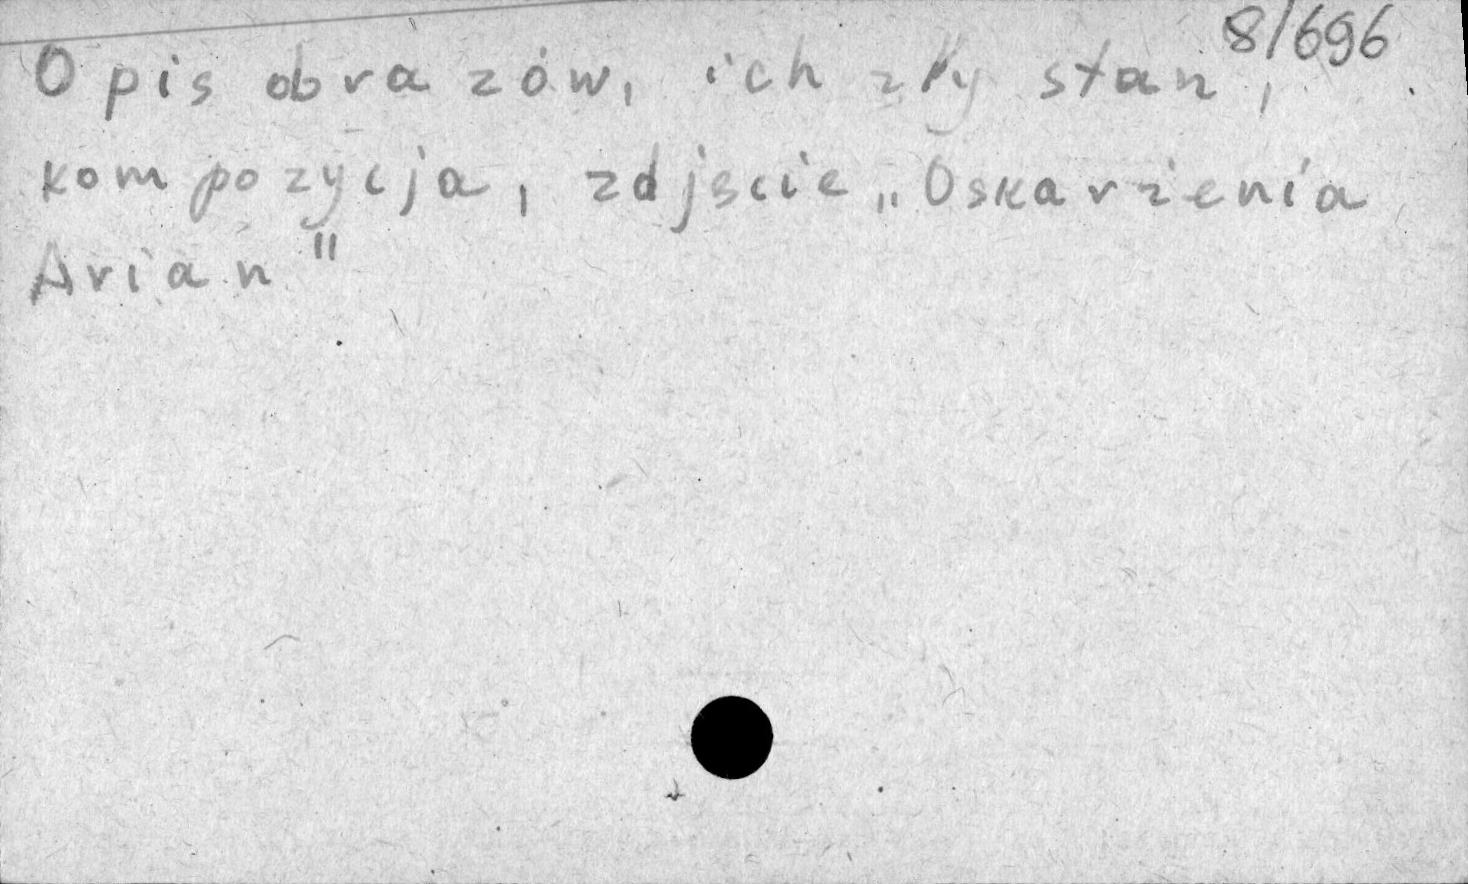 8/696
Opis obrazów, ich zły stan,
kompozycja, zdjęcie „Oskarżenia
Arian"